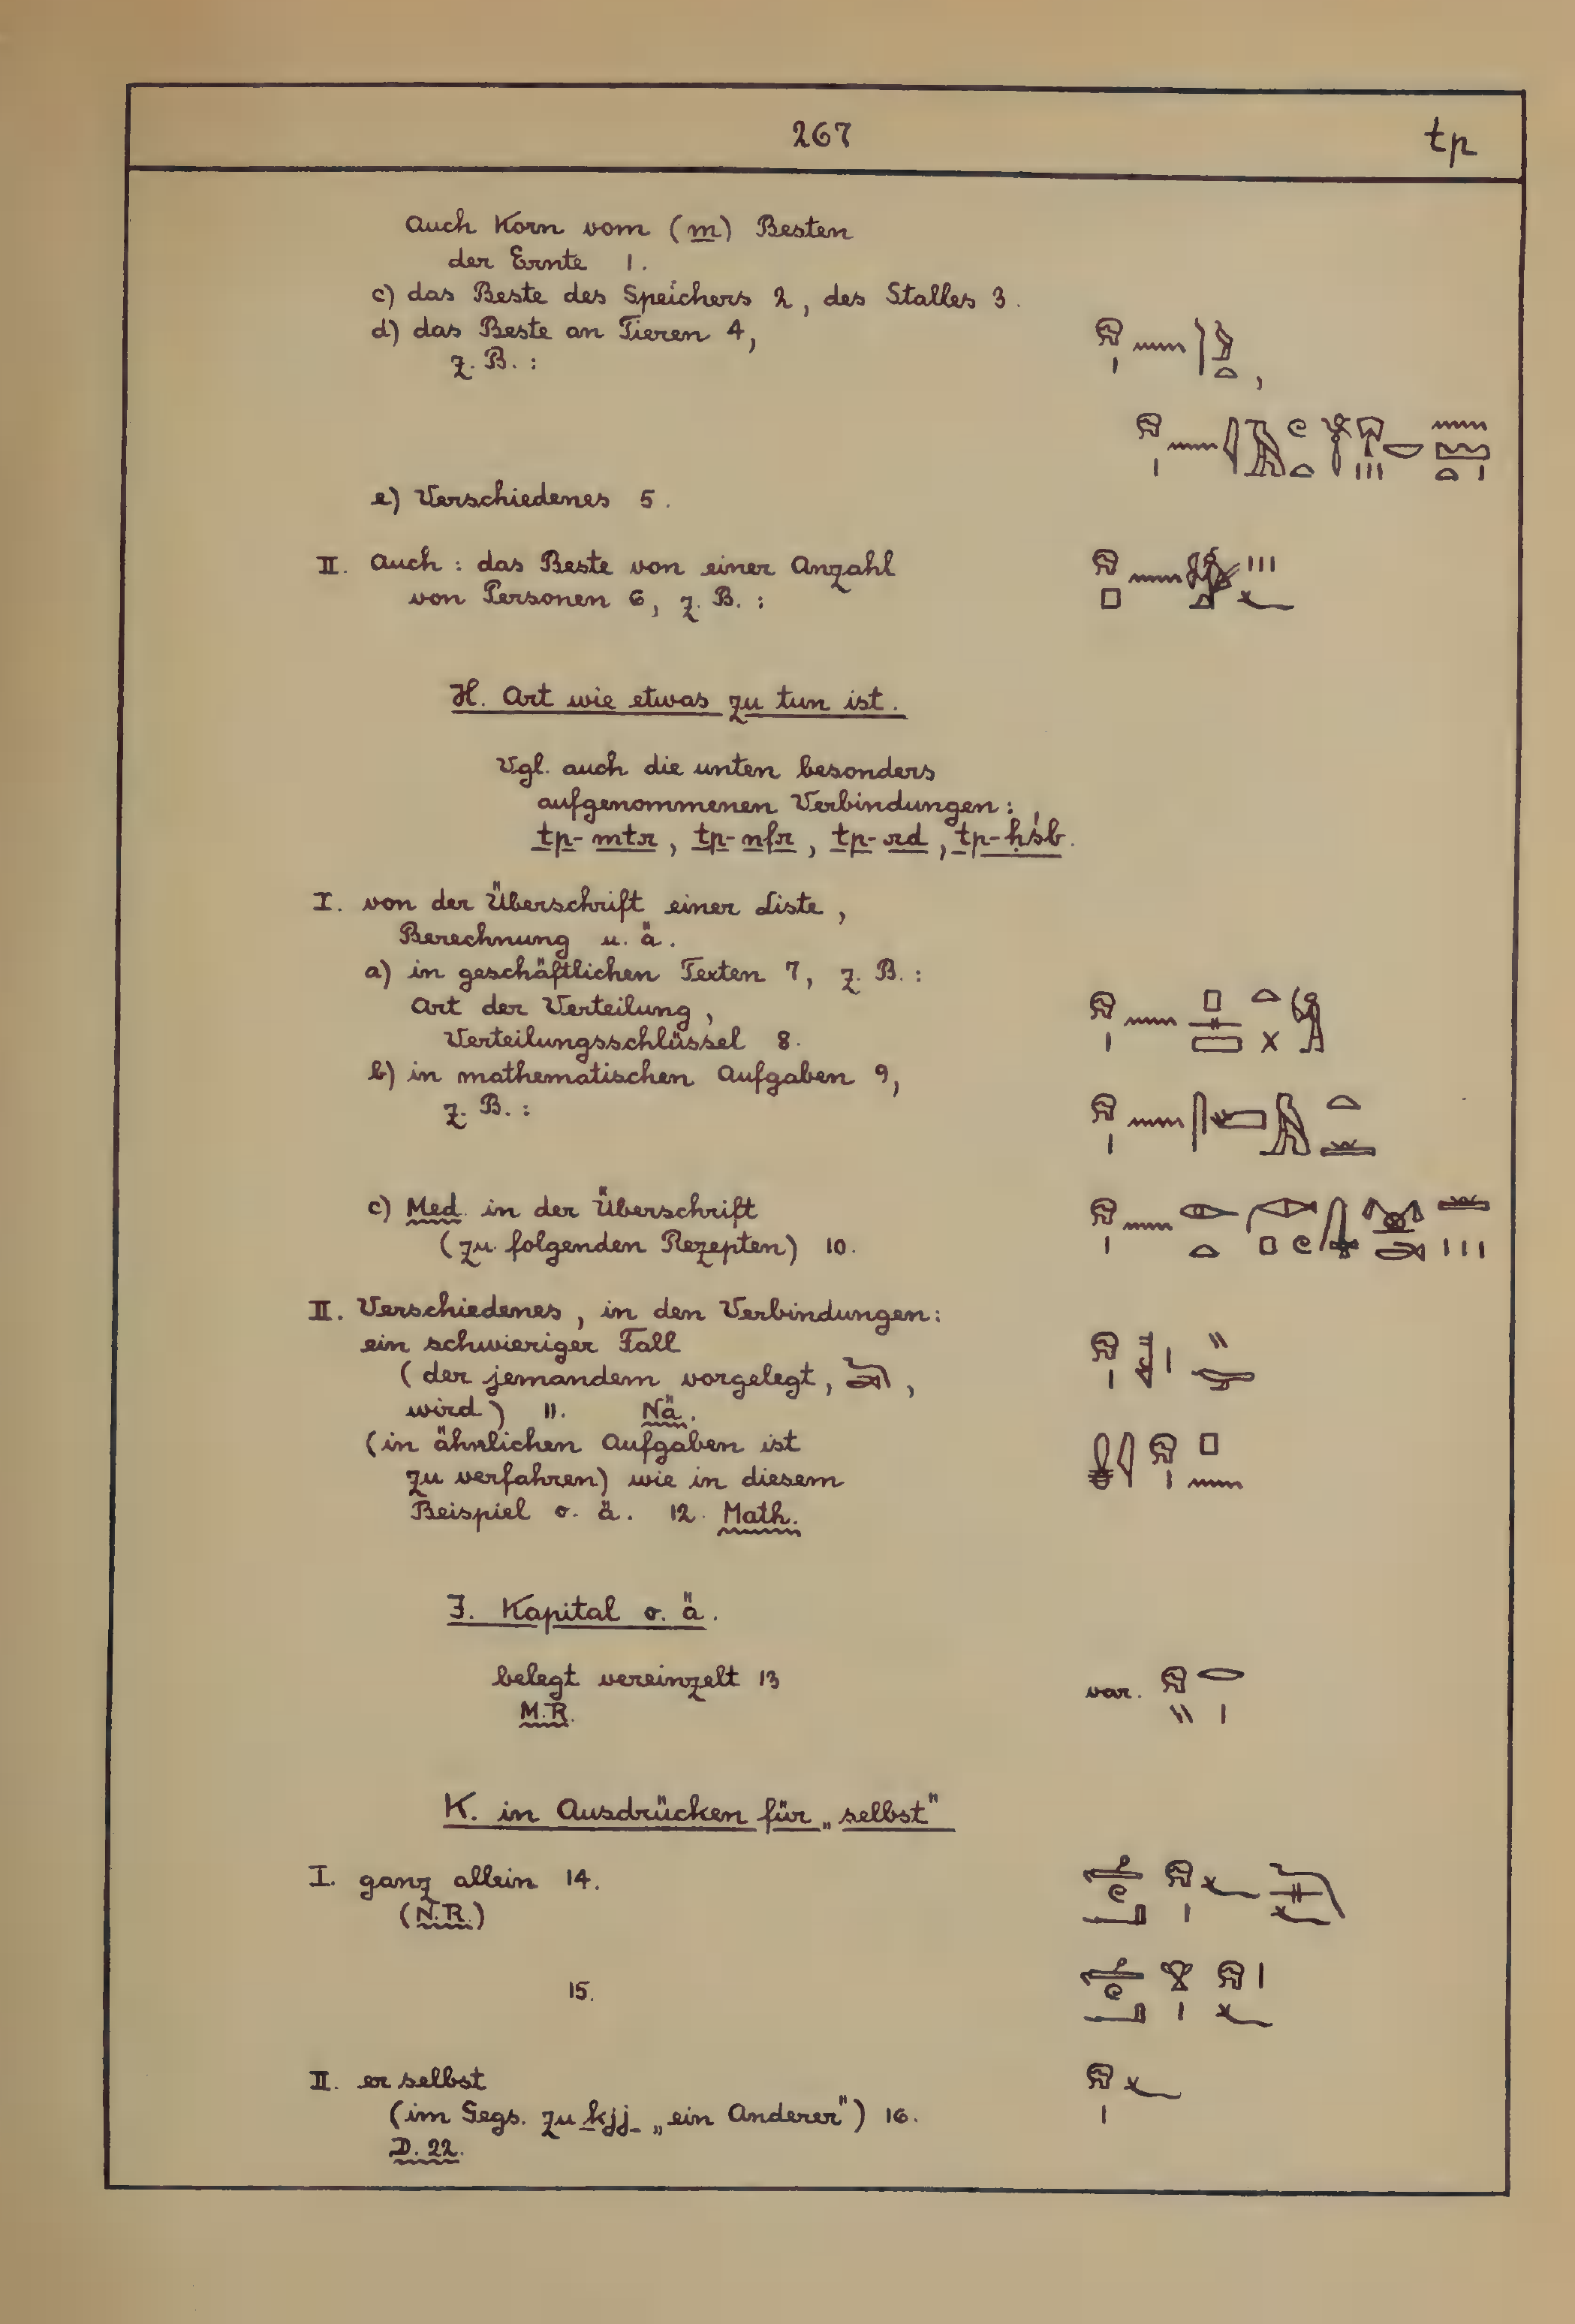 267
tp
Auch Korn vom (m) Besten
der Ernte 1.
c) das Beste des Speichers 2, des Stalles 3.
d) das Beste an Tieren 4,
z. B.:
e) Verschiedenes 5.
II. Auch: das Beste von einer Anzahl
von Personen 6, z. B.:
H. Art wie etwas zu tun ist.
Vgl. auch die unten besonders
aufgenommenen Verbindungen:
tp-mtr, tp-nfr, tp-rd, tp-ḥśb.
I. von der Überschrift einer Liste,
Berechnung u. ä.
a) in geschäftlichen Texten 7, z. B.:
Art der Verteilung,
Verteilungsschlüssel 8.
b) in mathematischen Aufgaben 9,
z. B.:
c) Med. in der Überschrift
(zu folgenden Rezepten) 10.
II. Verschiedenes, in den Verbindungen:
ein schwieriger Fall
(der jemandem vorgelegt, ,
wird) 11. Nä.
(in ähnlichen Aufgaben ist
zu verfahren) wie in diesem
Beispiel o. ä. 12. Math.
J. Kapital o. ä.
belegt vereinzelt 13
M.R.
var.
K. in Ausdrücken für „selbst"
I. ganz allein 14.
(N.R.)
15.
II. er selbst
(im Gegs. zu kjj „ein Anderer") 16.
D. 22.